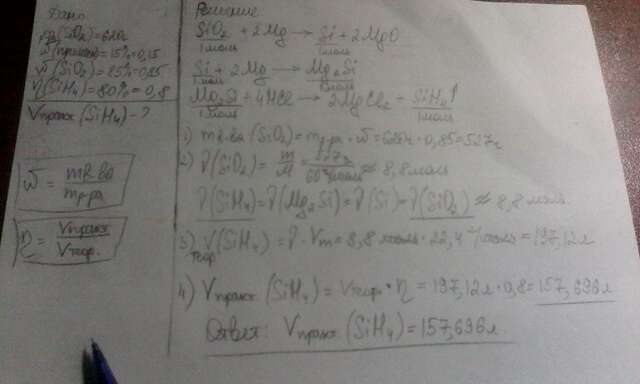 Дано
m(SiO₂)=620г
w(примеси)=15%=0,15
w(SiO₂)=85%=0,85
η(SiH₄)=80%=0,8
Vпракт(SiH₄)-?
w = mв-ва / mр-ра
η = Vпракт / Vтеор.
Решение
SiO₂ + 2Mg → Si + 2MgO
1моль 1моль
Si + 2Mg → Mg₂Si
1моль 1моль
Mg₂Si + 4HCl → 2MgCl₂ + SiH₄↑
1моль 1моль
1) mв-ва (SiO₂) = mр-ра · w = 620г · 0,85 = 527г
2) ν(SiO₂) = m/M = 527г / 60г/моль ≈ 8,8моль
ν(SiH₄) = ν(Mg₂Si) = ν(Si) = ν(SiO₂) ≈ 8,8 моль.
3) Vтеор(SiH₄) = ν · Vm = 8,8 моль · 22,4 л/моль = 197,12л
4) Vпракт. (SiH₄) = Vтеор. · η = 197,12л · 0,8 = 157,696л
Ответ: Vпракт (SiH₄) = 157,696л.